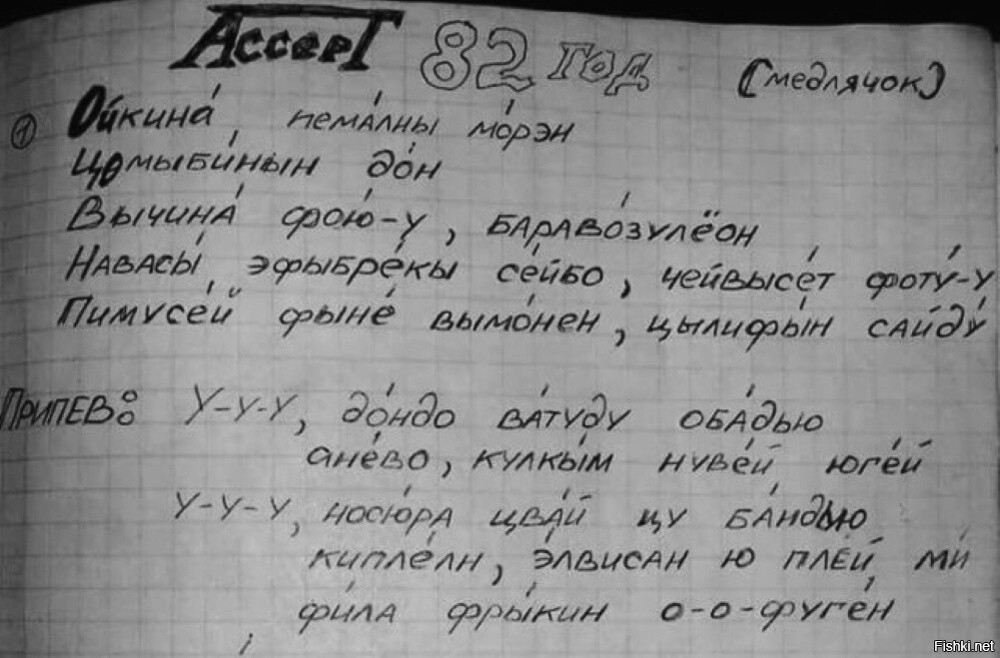 Accept 82 год (медлячок)
① Ойкина́, пема́лны мо́рэн
Цомыби́нын до́н
Вычина́ фою́-у, бараво́зулёон
Навасы́ эфыбре́кы се́йбо, чейвысе́т фоту́-у
Пимусе́й фыне́ вымо́нен, цылифы́н сайду́
Припев: У-у-у, до́ндо ва́туду оба́дью
ане́во, кулкы́м нуве́й юге́й
У-у-у, носю́ра цва́й цу ба́ндью
кипле́лн, э́лвисан ю пле́й ми́
фи́ла фры́кин о-о-фуге́н
Fishki.net